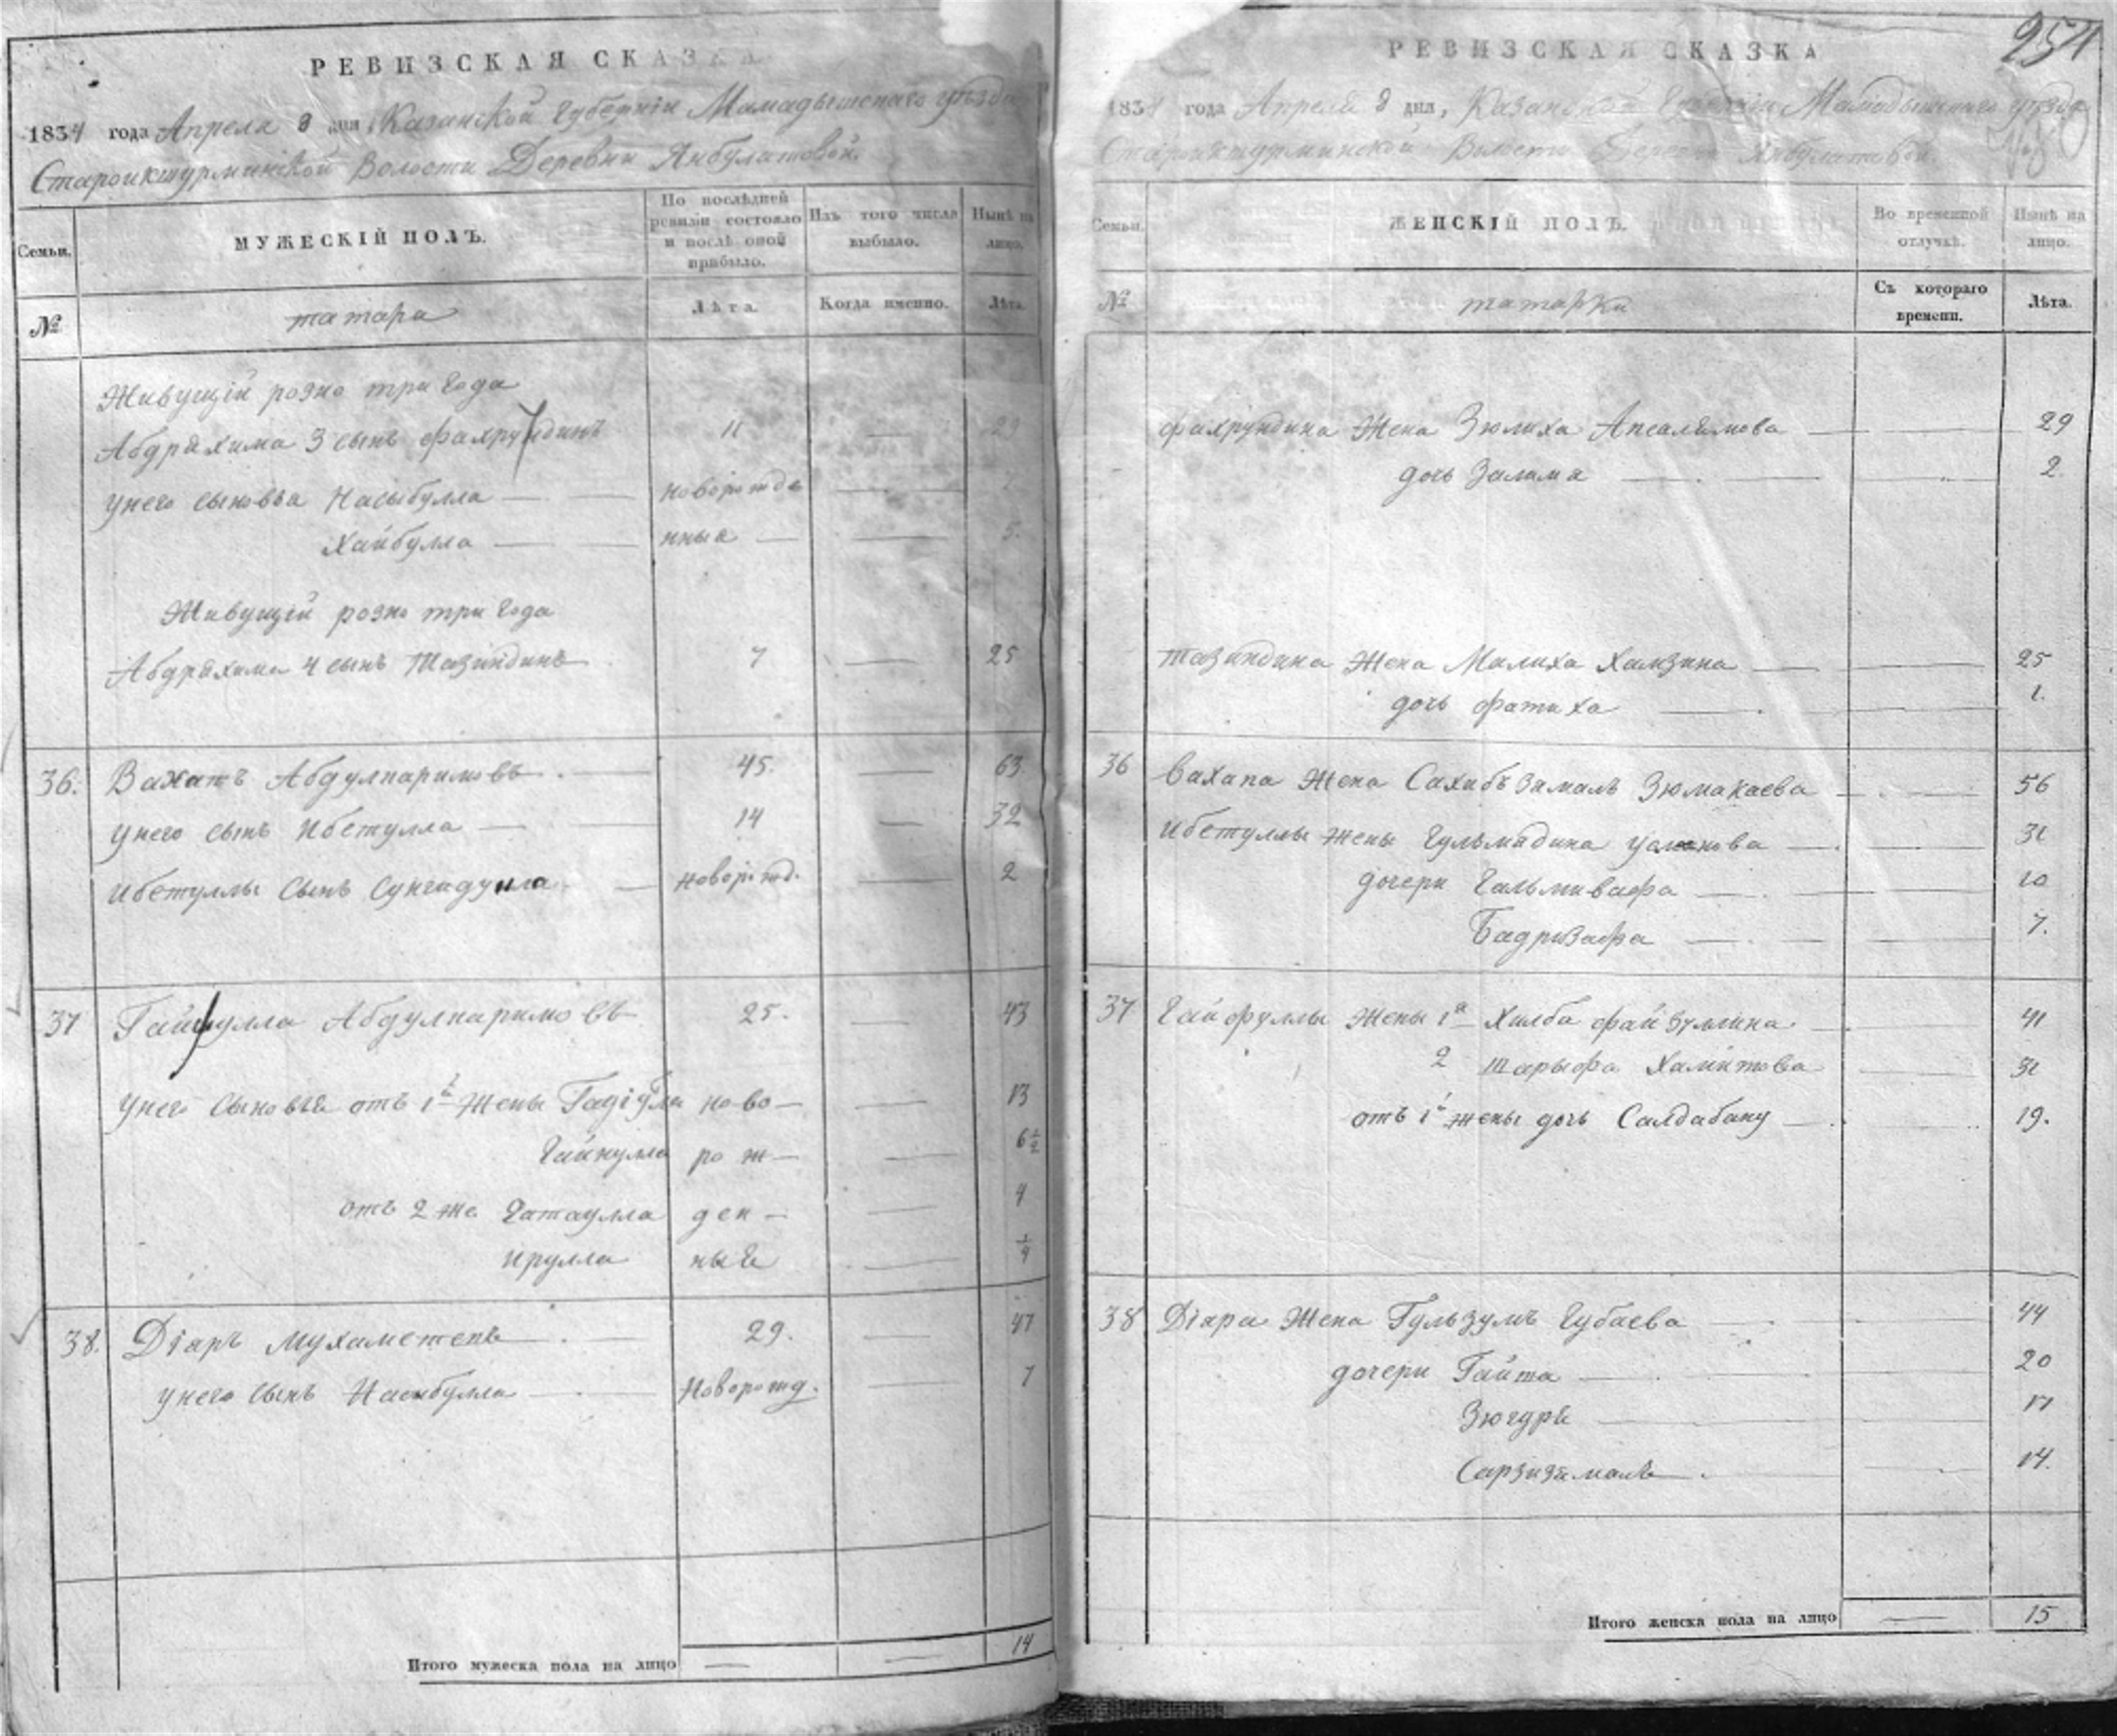 РЕВИЗСКАЯ СКАЗКА
1834 года Апреля 8 дня, Казанской Губерніи Мамадышскаго уѣзда
Староикшурминской Волости Деревни Янбулатовой.
Семьи.
МУЖЕСКІЙ ПОЛЪ.
По послѣдней ревизіи состояло и послѣ оной прибыло.
Изъ того числа выбыло.
Нынѣ на лицо.
№
татара
Лѣта.
Когда именно.
Лѣта.
Живущій розно три года
Абдряхима 3 сынъ Фахрундинъ 11 — 29
у него сыновья Насыбулла — новорожде —
Хайбулла — нныя — 5.
Живущій розно три года
Абдряхима 4 сынъ Тазиндинъ 7 — 25
36. Вахапъ Абдулкаримовъ — 45. — 63
у него сынъ Ибетулла — 14 — 32
Ибетуллы сынъ — новорожд. — 2
37 Гайфулла Абдулкаримовъ 25. — 43
у него сыновья отъ 1й жены ново — 13
Гайнулла рож — 6 1/2
отъ 2 же Гатаулла ден — 4
Ирулла ныя — 1/4
38. Діаръ Мухаметевъ — 29. — 47
у него сынъ Насибулла — Новорожд. — 7
Итого мужеска пола на лицо — — 14
254
РЕВИЗСКАЯ СКАЗКА
1834 года Апреля 8 дня, Казанской Губерніи Мамадышскаго уѣзда
Староикшурминской Волости Деревни Янбулатовой.
Семьи.
ЖЕНСКІЙ ПОЛЪ.
Во временной отлучкѣ.
Нынѣ на лицо.
№
татарки
Съ котораго времени.
Лѣта.
Фахрундина жена Зюлиха Апсалямова — 29
дочь Залима — 2.
Тазиндина жена Малиха Хамзина — 25
дочь Фатиха — 1.
36 Вахапа жена Сахибъ Замалъ Зюмакаева — 56
Ибетуллы жены Гульмядина Усманова — 31
дочери Гальмивафа — 10
Бадривафа — 7.
37 Гайфуллы жены 1я Хилба Файзуллина — 41
2 Шарыфа Хамитова 31
отъ 1й жены дочь Салдабану — 19.
38 Діяра жена Гульзумъ Губаева 44
дочери Гайша — 20
Зюгуря — 17
— 14.
Итого женска пола на лицо — 15